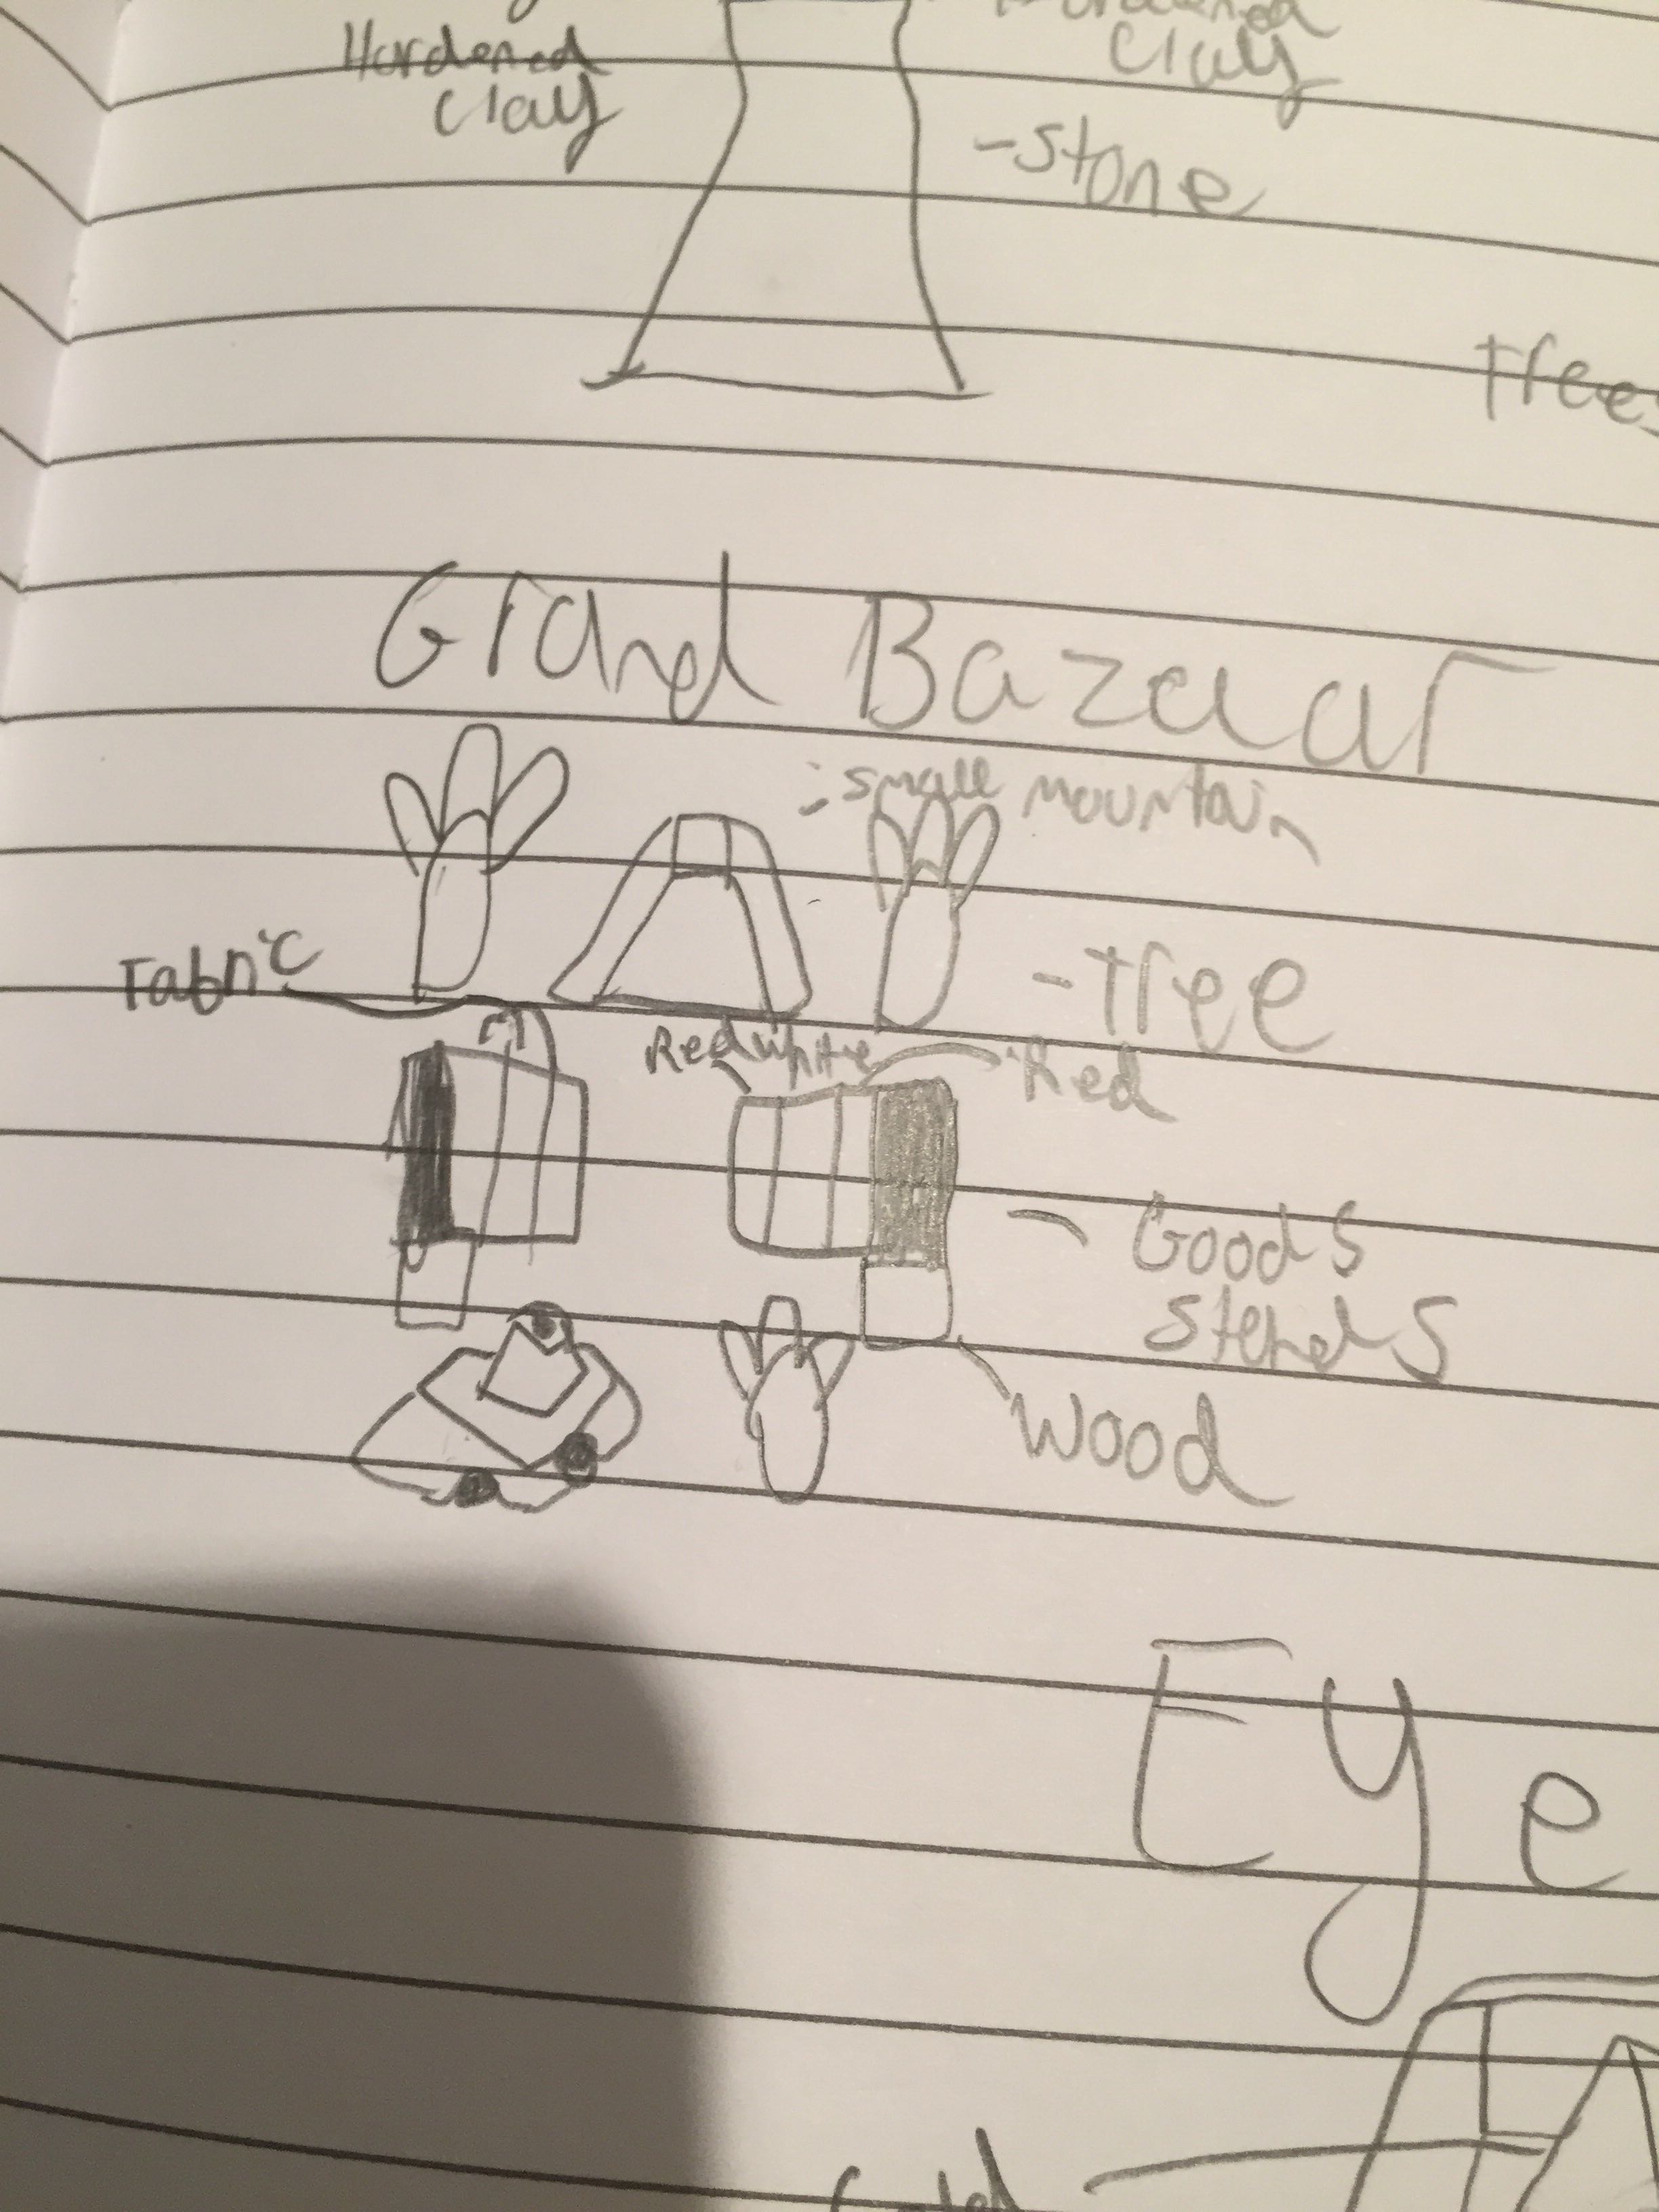 Hardened
Clay
Clay
-Stone
Trees
Grand Bazaar
-small mountain
Fabric
-Tree
Red white
Red
- Goods
Stends
Wood
Eye